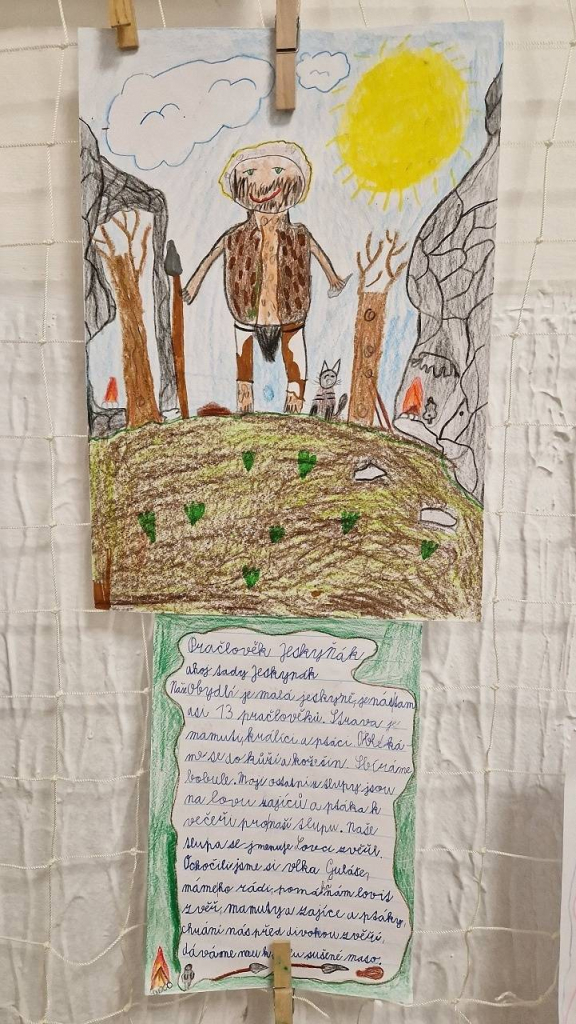 Pračlověk Jeskyňák
ahoj tady Jeskyňák
Naše Obydlí je malá jeskyně, je nás tam
asi 13 pračlověků. Strava je
mamuti, králíci a ptáci. Obléká-
me se do kůží a kožešin. Sbíráme
bobule. Moji ostatní z tlupy jsou
na lovu zajíců a ptáka k
večeři pro naší tlupu. Naše
tlupa se jmenuje Lovci zvěře.
Ochočili jsme si vlka Guláše,
máme ho rádi, pomáhá nám lovit
zvěř, mamuty a zajíce a ptáky,
chrání nás před divokou zvěří,
dáváme mu sušené maso.